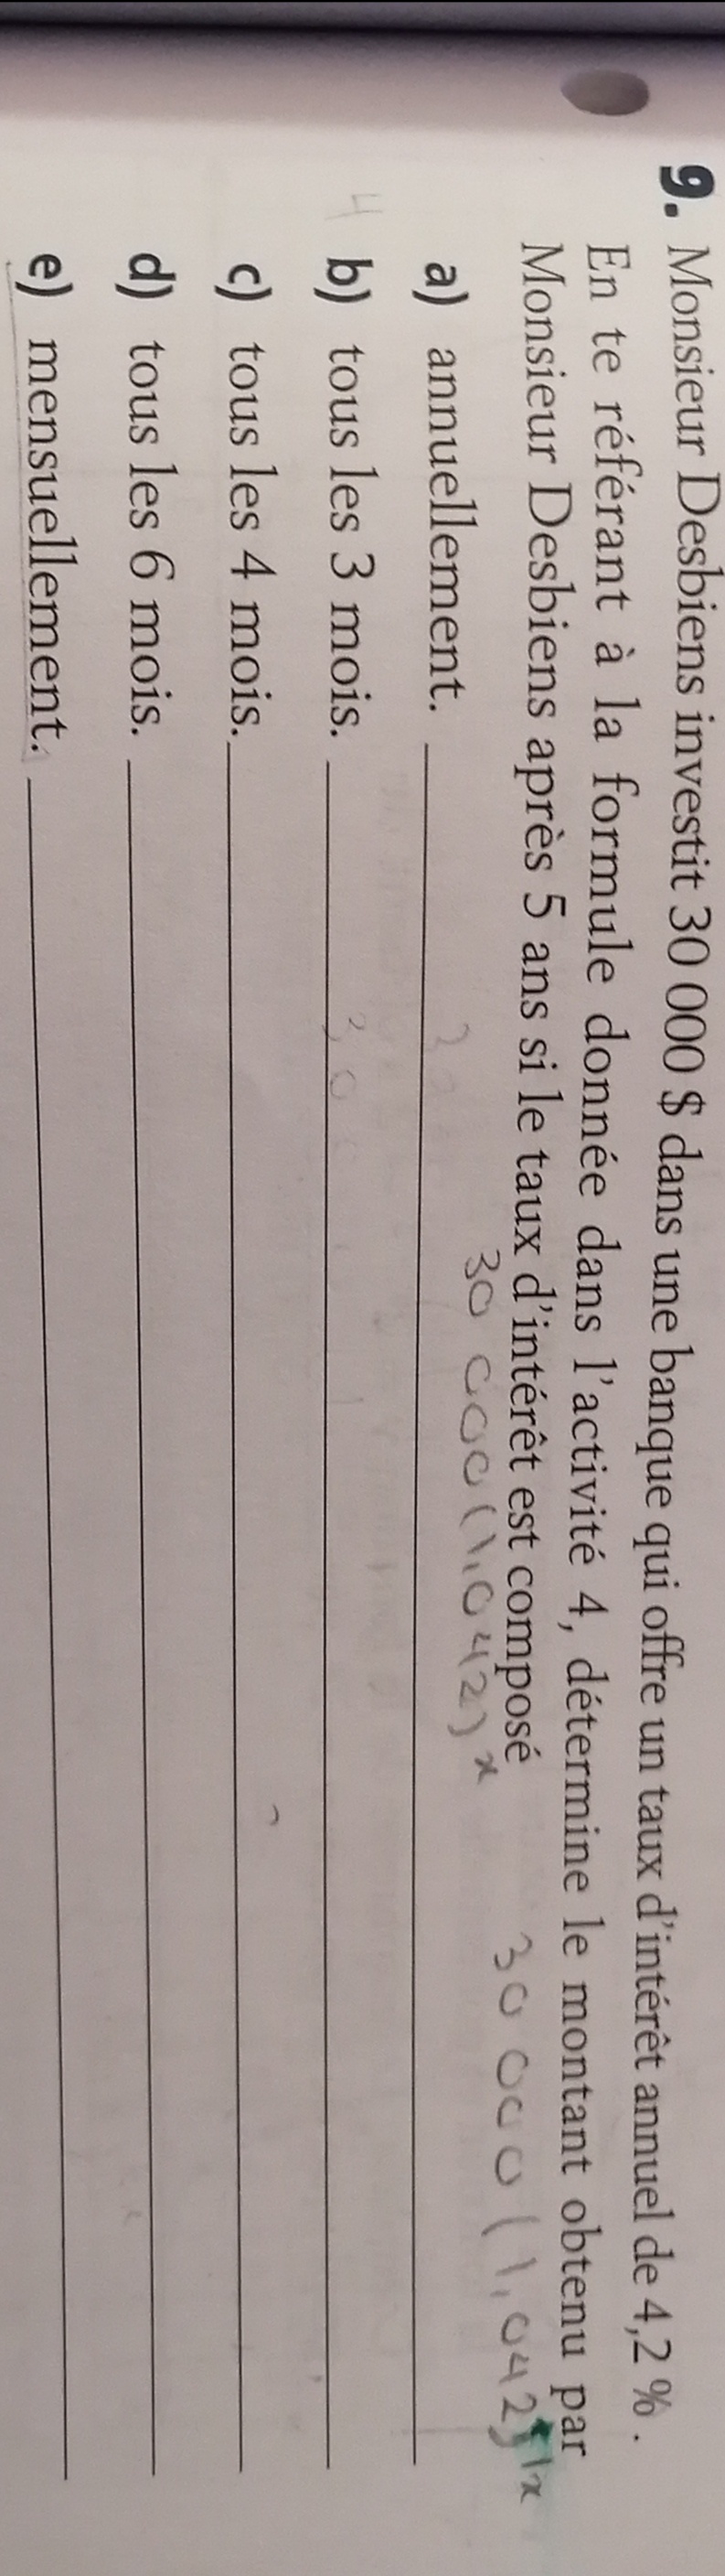 9. Monsieur Desbiens investit 30 000 $ dans une banque qui offre un taux d'intérêt annuel de 4,2 %.
En te référant à la formule donnée dans l'activité 4, détermine le montant obtenu par
Monsieur Desbiens après 5 ans si le taux d'intérêt est composé
30 000 (1,042) x
30 000 (1,042) 1x
a) annuellement.
4
b) tous les 3 mois.
c) tous les 4 mois.
d) tous les 6 mois.
e) mensuellement.